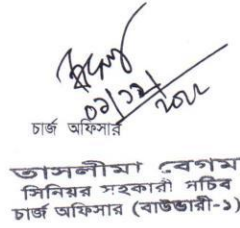 ০৯/১২/২০২
চার্জ অফিসার
তাসলীমা বেগম
সিনিয়র সহকারী সচিব
চার্জ অফিসার (বাউন্ডারী-১)